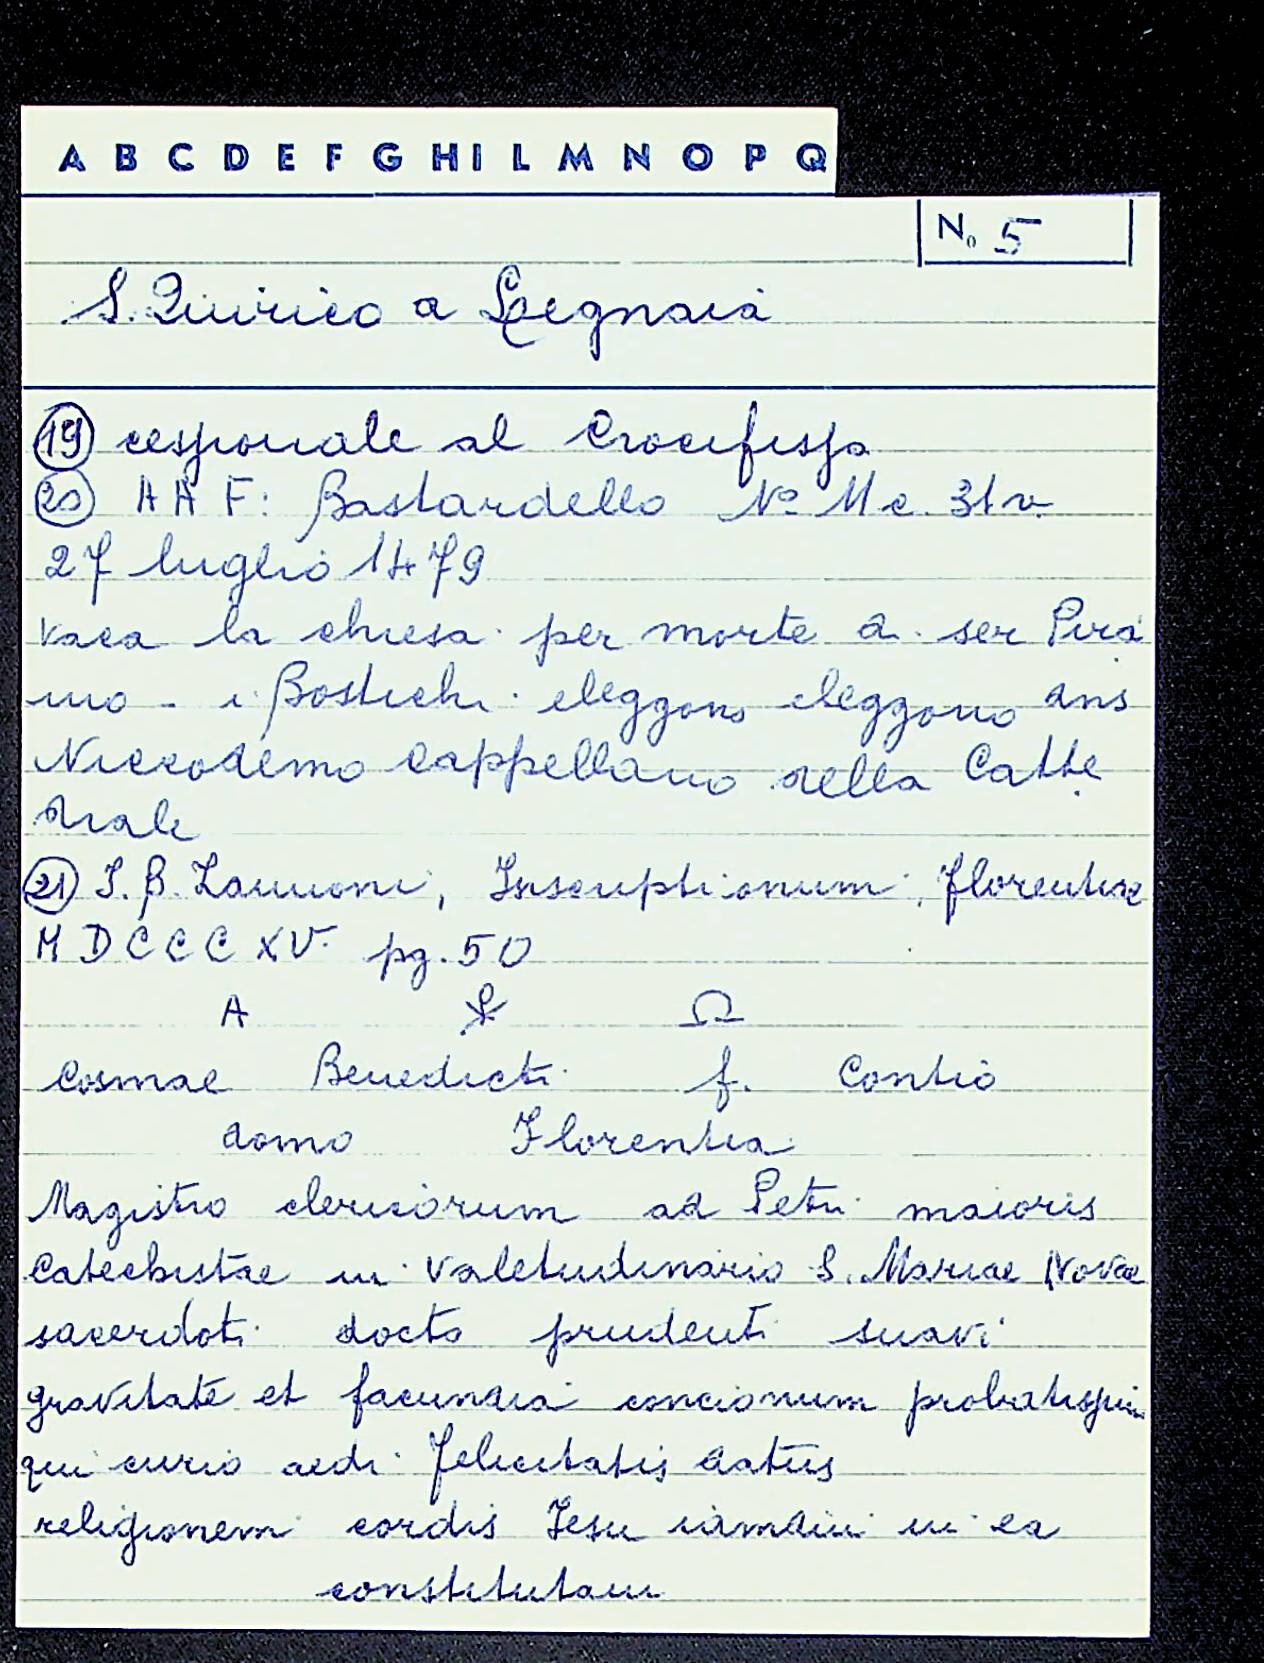 A B C D E F G H I L M N O P Q
N. 5
S. Quirico a Legnaia
19 cesponale al Crocifisso
20 A A F: Bastardello Nº 11 c. 31 v.
27 luglio 1479
vaca la chiesa per morte d. ser Pira
mo - i Bostichi eleggono eleggono dns
Niccodemo cappellano della Catte
drale
21 I. B. Zannoni, Inscriptionum, Florentiae
M D C C C X V. pg. 50
A ☧ Ω
Cosmae Benedicti f. Contio
domo Florentia
Magistro clericorum ad Petri maioris
Catechistae in valetudinario S. Mariae Novae
sacerdoti docto prudenti suavi
gravitate et facundia concionum probatissim.
qui curio aedi Felicitatis datus
religionem cordis Iesu iamdiu in ea
constitutam